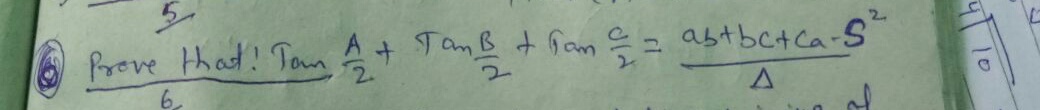 5
6 Prove that! Tan A/2 + Tan B/2 + Tan C/2 = ab+bc+ca-S²/Δ
6
of